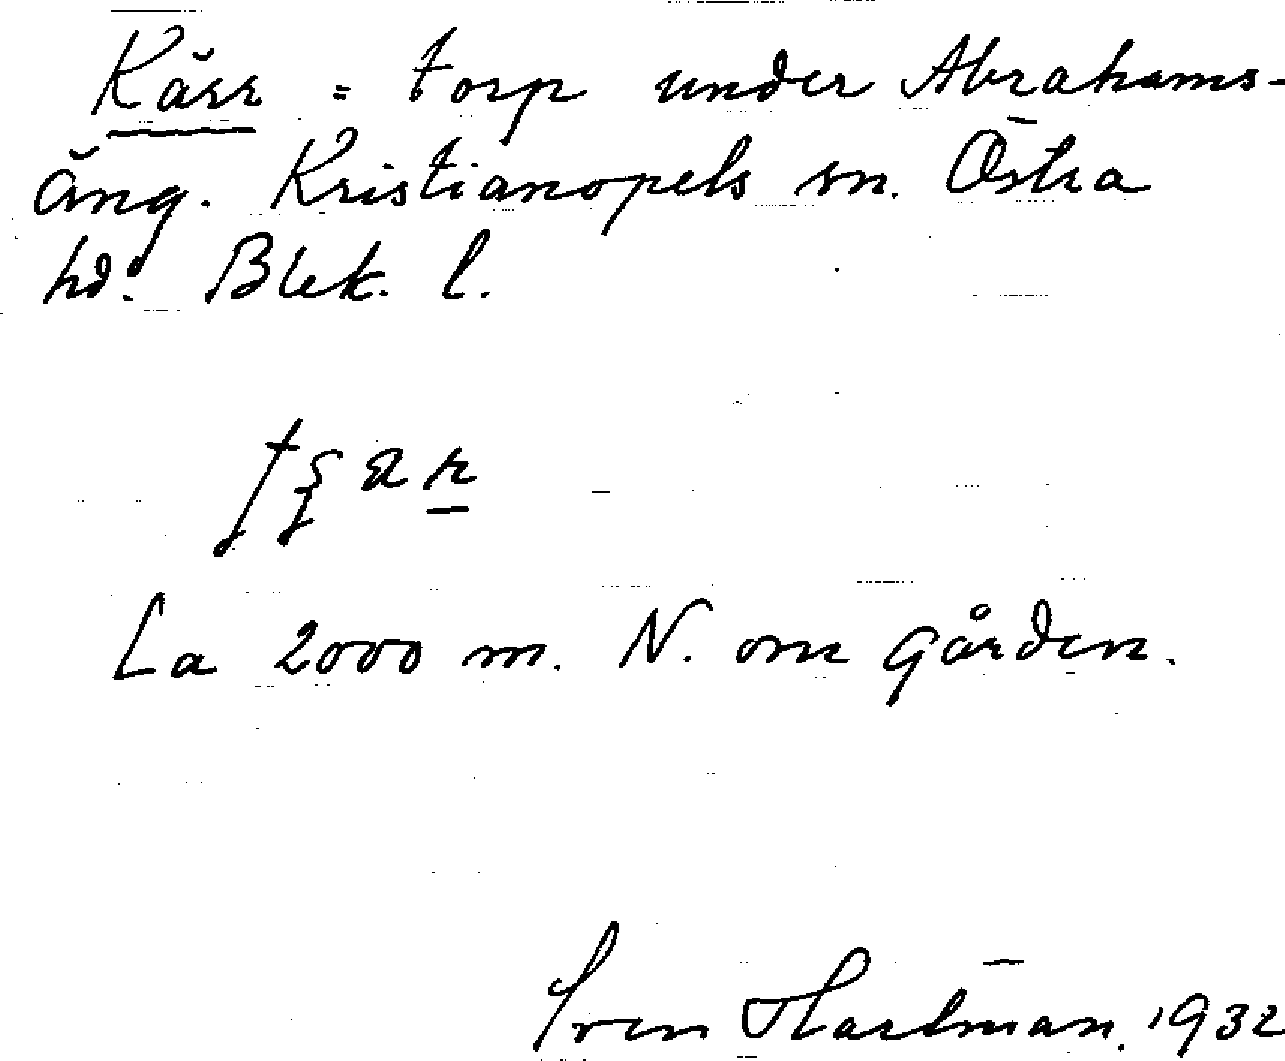 Kärr = torp under Abrahams-
äng. Kristianopels sn. Östra
hd. Blek. l.
La 2000 m. N. om gården.
Sven Hartman. 1932